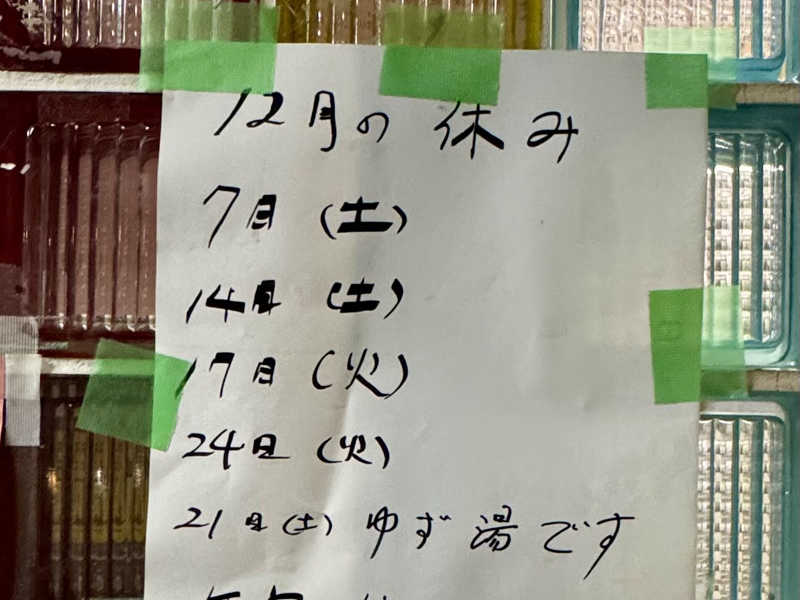 12月の休み
7日(土)
14日(土)
17日(火)
24日(火)
21日(土)ゆず湯です